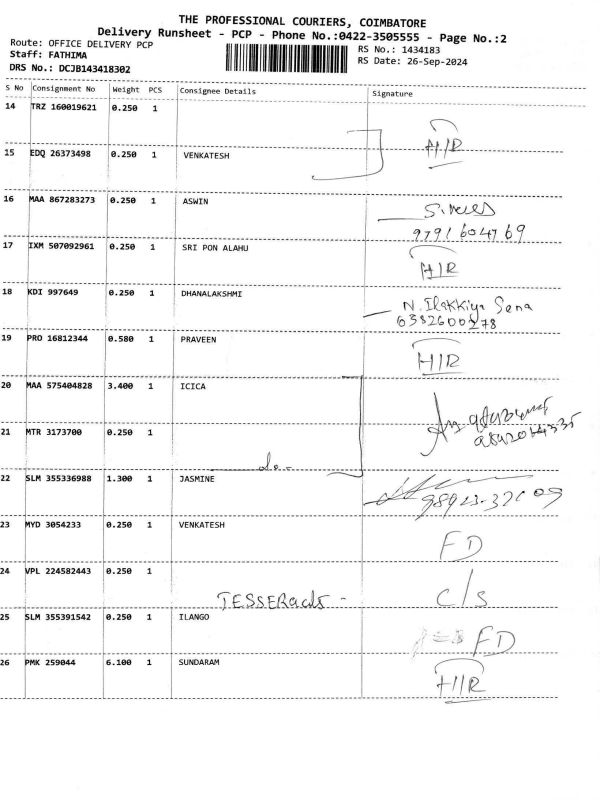 THE PROFESSIONAL COURIERS, COIMBATORE
Delivery Runsheet - PCP - Phone No.:0422-3505555 - Page No.:2
Route: OFFICE DELIVERY PCP
Staff: FATHIMA
DRS No.: DCJB143418302
RS No.: 1434183
RS Date: 26-Sep-2024
S No Consignment No Weight PCS Consignee Details Signature
14 TRZ 160019621 0.250 1 H/R
15 EDQ 26373498 0.250 1 VENKATESH
16 MAA 867283273 0.250 1 ASWIN
9791604769
17 IXM 507092961 0.250 1 SRI PON ALAHU H/R
18 KDI 997649 0.250 1 DHANALAKSHMI N. Ilakkiya Sena
6382600278
19 PRO 16812344 0.580 1 PRAVEEN H/R
20 MAA 575404828 3.400 1 ICICA
21 MTR 3173700 0.250 1
do-
22 SLM 355336988 1.300 1 JASMINE
23 MYD 3054233 0.250 1 VENKATESH FD
24 VPL 224582443 0.250 1
TESSERacts - C/S
25 SLM 355391542 0.250 1 ILANGO FD
26 PMK 259044 6.100 1 SUNDARAM H/R